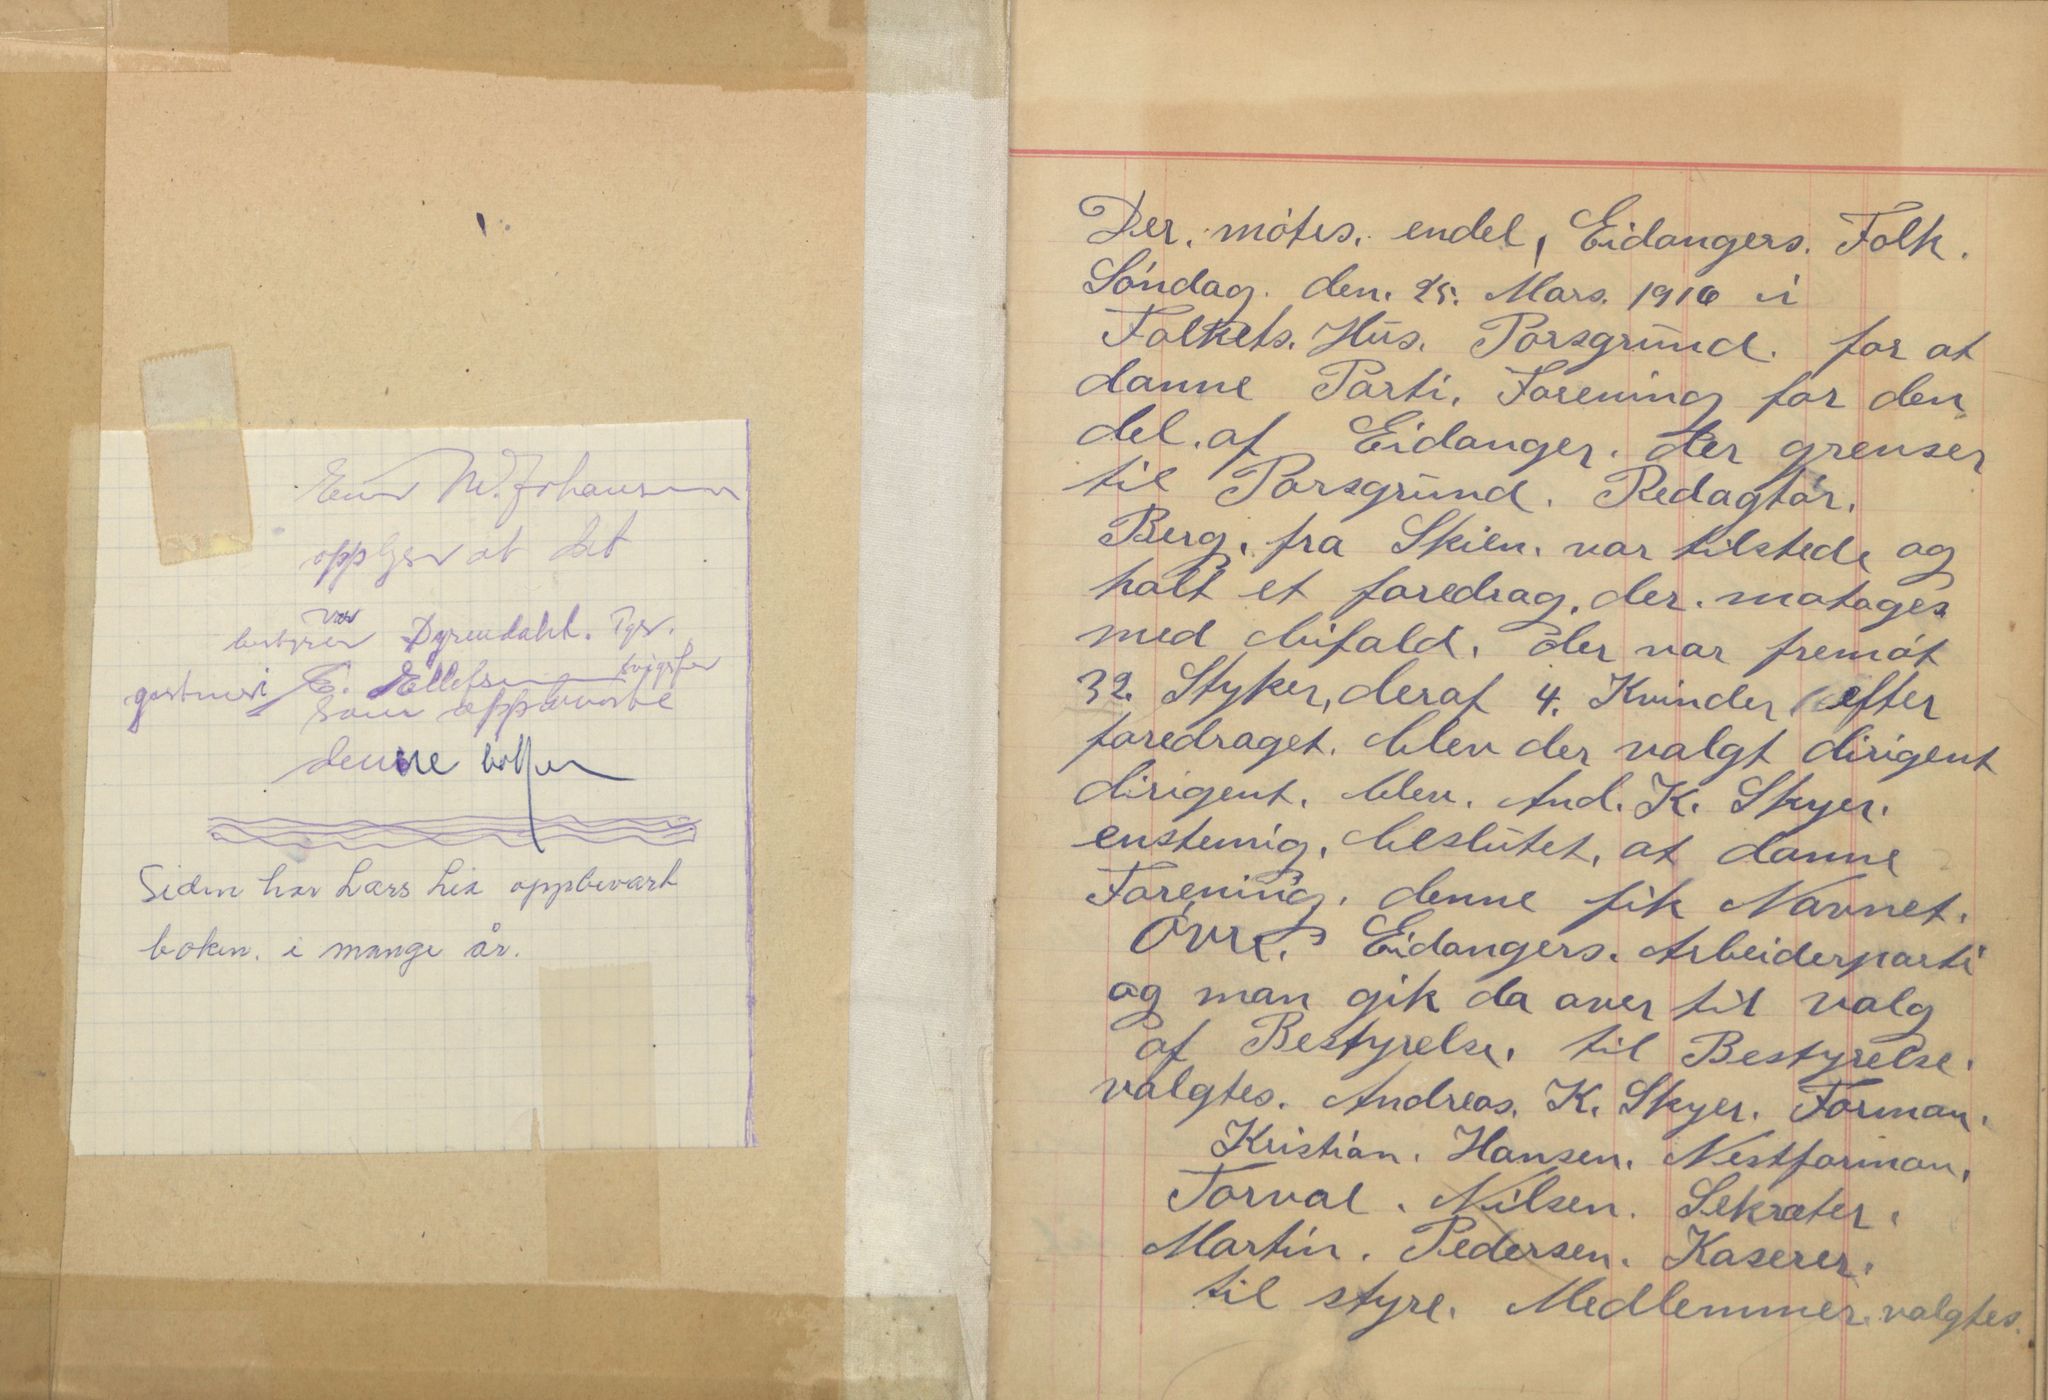 M. Johansen
opplyser at det
var
bestyrer Dyrendahl.
E. Ellefsen
som oppbevarte
denne
Siden har Lars Lia oppbevart
boken. i mange år.
Der. mötes. endel, Eidangers. Folk.
Söndag. den. 25. Mars. 1910 i
Folkets. Hus. Porsgrund. for at
danne Parti. Forening for den
del. af Eidanger. der grenser
til Porsgrund. Redagtör.
Berg. fra Skien. var tilstede og
halt et foredrag. der. motoges
med bifald. der var fremöt
32. Styker, deraf 4. Kvinder efter
foredraget. blev der valgt dirigent
dirigent. blev. And. K. Skyer.
enstemig. beslutet. at danne
Forening. denne fik Navnet.
Övre. Eidangers. Arbeiderparti
og man gik da over til valg
af Bestyrelse. til Bestyrelse.
valgtes. Andreas. K. Skyer. Forman.
Kristian. Hansen. Nestforman.
Torval. Nilsen. Sekrater.
Martin. Pedersen. Kaserer.
til styre. Medlemmer. valgtes.